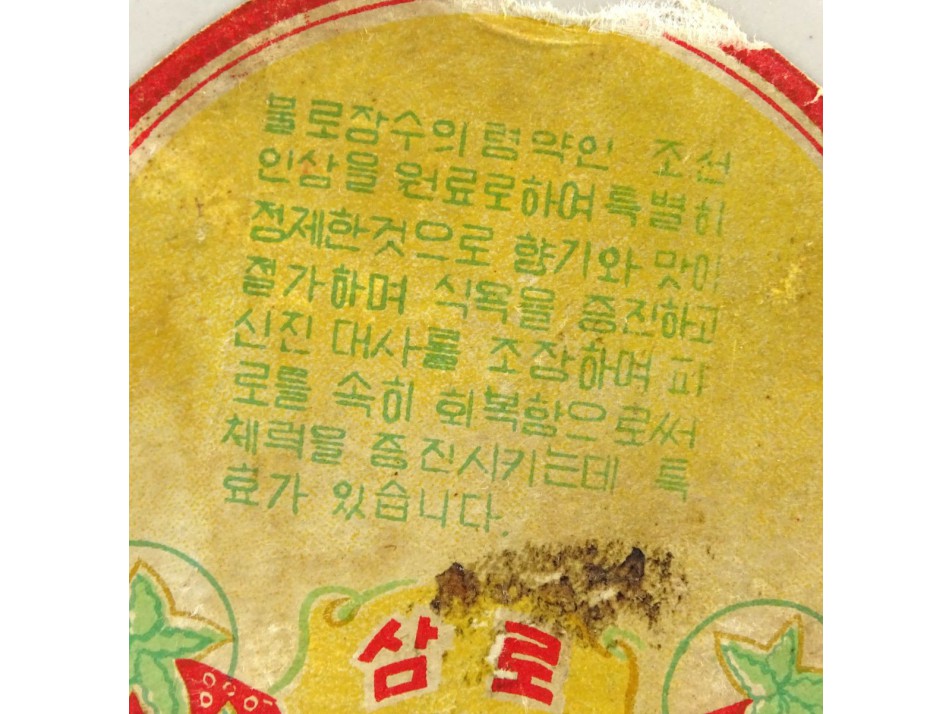 불로장수의 령약인 조선
인삼을 원료로하여 특별히
정제한것으로 향기와 맛이
절가하며 식욕을 증진하고
신진 대사를 조장하며 피
로를 속히 회복함으로써
체력을 증진시키는데 특
효가 있습니다.
삼로